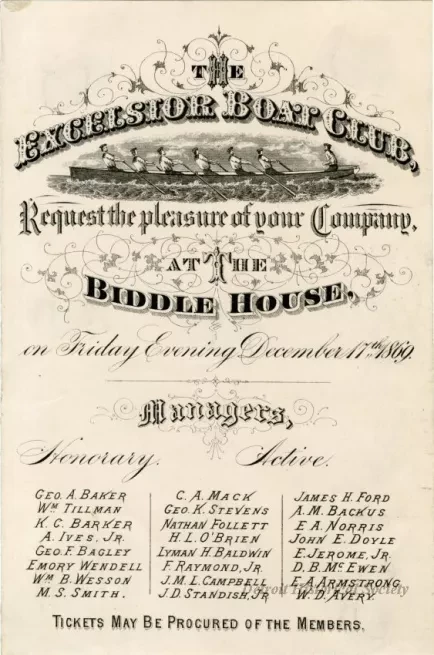 THE
EXCELSIOR BOAT CLUB,
Request the pleasure of your Company,
AT THE
BIDDLE HOUSE,
on Friday Evening December 17th 1869.
Managers,
Honorary. Active.
GEO. A. BAKER
WM TILLMAN
K. C. BARKER
A. IVES, JR.
GEO. F. BAGLEY
EMORY WENDELL
WM B. WESSON
M. S. SMITH.
C. A. MACK
GEO. K. STEVENS
NATHAN FOLLETT
H. L. O'BRIEN
LYMAN H. BALDWIN
F. RAYMOND, JR.
J. M. L. CAMPBELL
J. D. STANDISH, JR
JAMES H. FORD
A. M. BACKUS
E. A. NORRIS
JOHN E. DOYLE
E. JEROME, JR.
D. B. MC EWEN
E. A. ARMSTRONG
W. D. AVERY.
Detroit Historical Society
TICKETS MAY BE PROCURED OF THE MEMBERS.